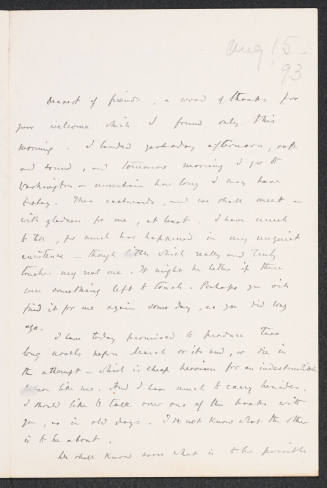 Aug 15 -
93
Dearest of friends, a word of thanks for
your welcome which I found only this
morning. I landed yesterday afternoon, safe
and sound, and tomorrow morning I go to
Washington uncertain how long I may have
to stay. Then eastwards, and we shall meet -
with gladness for me, at least. I have much
to tell, for much has happened in my unquiet
existence - though little which really and truly
touches my real me. It might be better if there
were something left to touch. Perhaps you will
find it for me again some day, as you did long
ago.
I have today promised to produce two
long novels before March or its end, or die in
the attempt - which is cheap heroism for an indestructible
like me. And I have much to carry besides.
I should like to talk over one of the books with
you, as in old days. I do not know what the other
is to be about.
We shall know soon what is to be possible